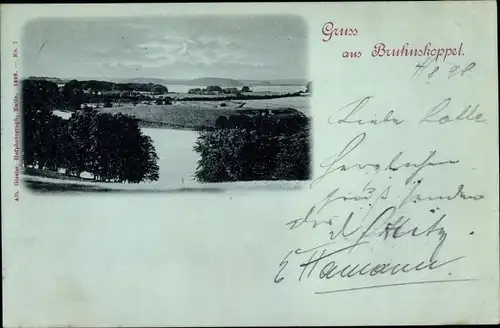 Gruss
aus Bruhnskoppel.
4/8 98
Liebe Lotte
Herzlichen
Gruß senden
dir d.
Hamann
Alb. Giesler, Hofphotograph, Eutin. 1898. – No. 7